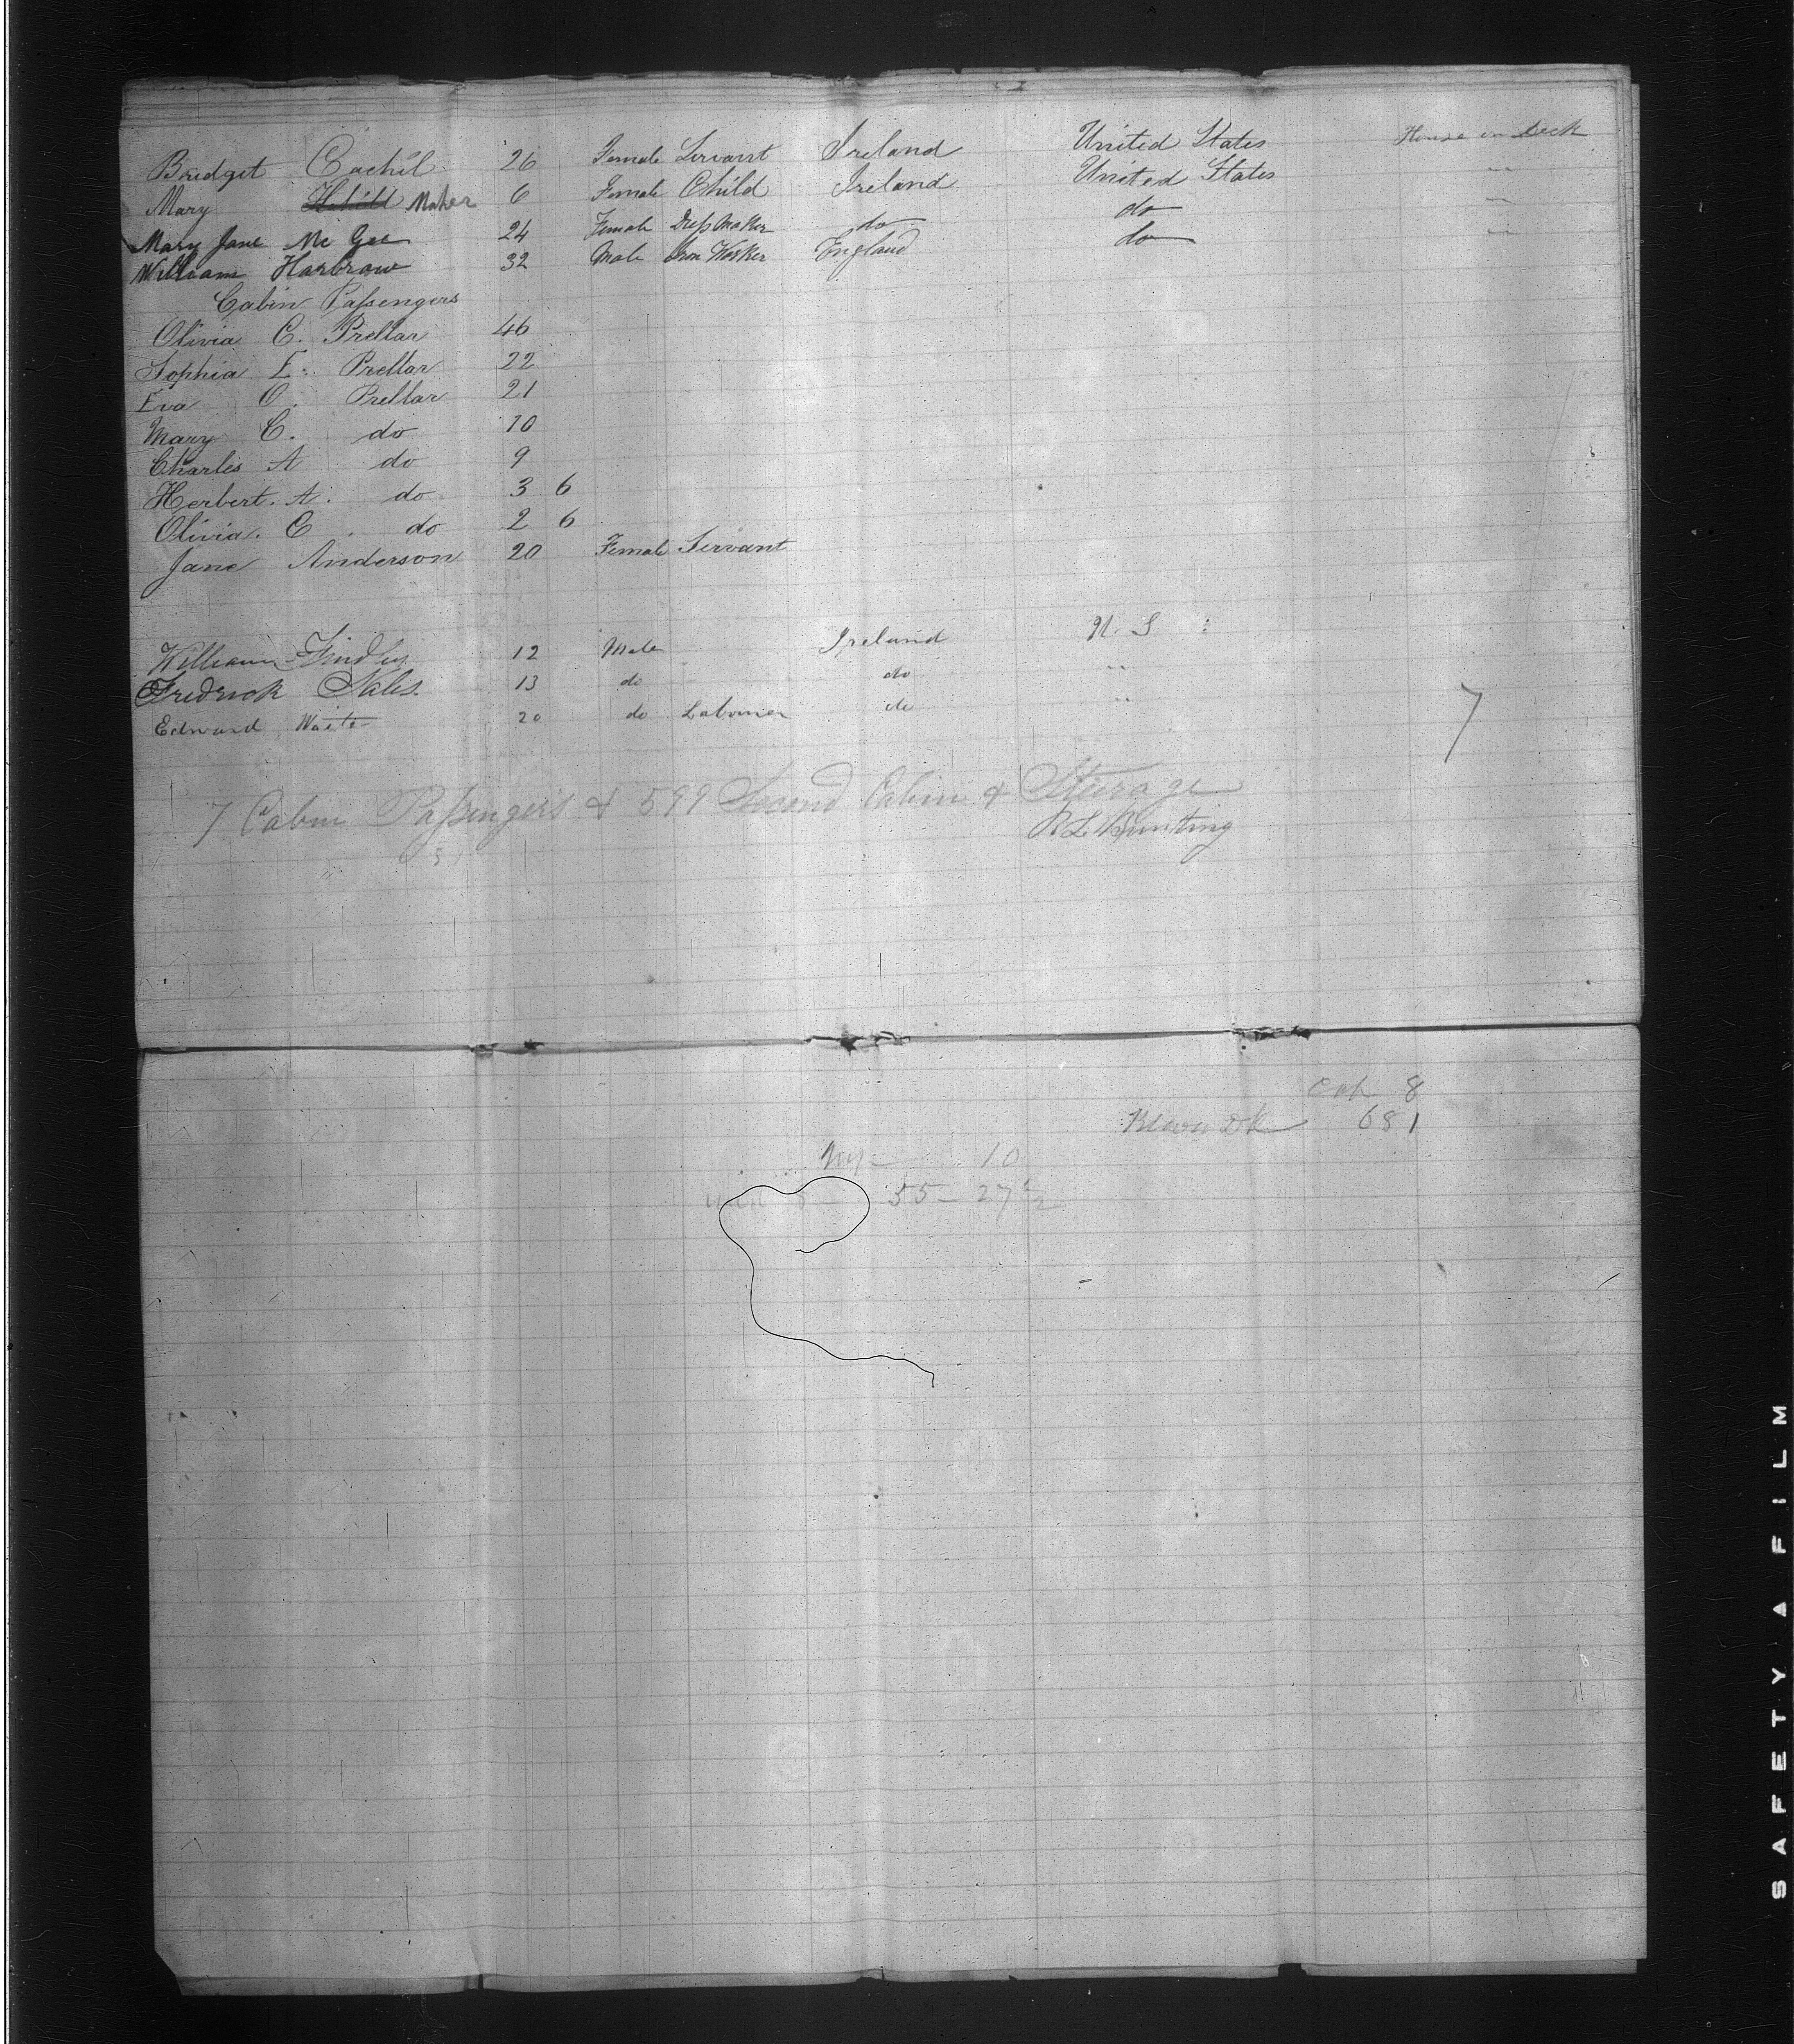 Bridget Cachil 26 Female Servant Ireland United States House on Deck
Mary Hahill Maher 6 Female Child Ireland United States "
Mary Jane Mc Gee 24 Female Dress Maker do do "
William Harbraw 32 Male Iron Worker England do "
Cabin Passengers
Olivia C. Prellar 46
Sophia E. Prellar 22
Eva O. Prellar 21
Mary C. do 10
Charles A do 9
Herbert. A. do 3 6
Olivia. C. do 2 6
Jane Anderson 20 Female Servant
William Findley 12 Male Ireland U. S
Fredrick Nales 13 do do "
Edward Waite 20 do Labourer do "
7
7 Cabin Passengers & 599 Second Cabin & Steerage
R L Bunting
8
Dk 681
10
8 55 - 27 1/2
SAFETY A FILM